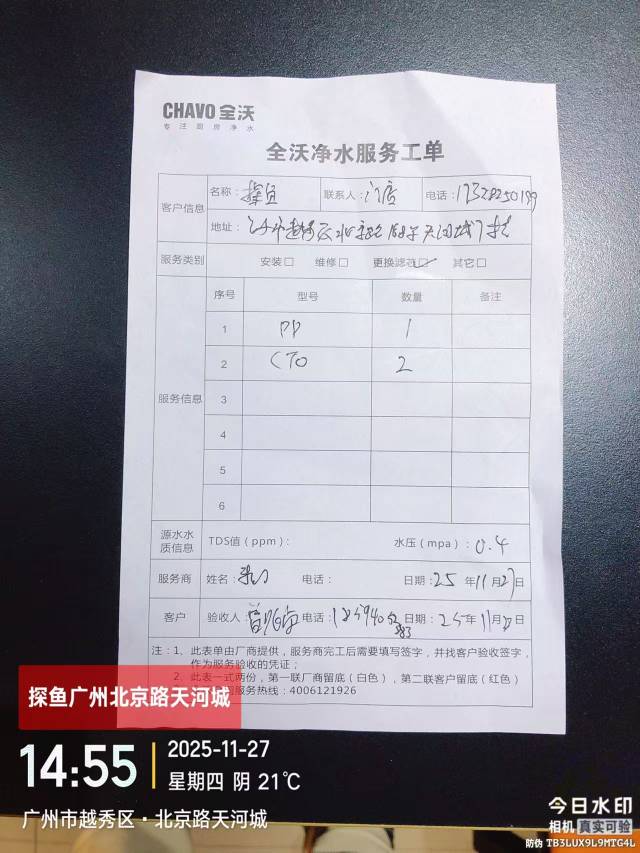 CHAVO 全沃
专注厨房净水
全沃净水服务工单
客户信息
名称： 探鱼 联系人： 门店 电话： 17328250189
地址：
服务类别 安装□ 维修□ 更换滤芯☑ 其它□
服务信息
序号 型号 数量 备注
1 PP 1
2 CTO 2
3
4
5
6
源水水质信息 TDS值（ppm）： 水压（mpa）： 0.4
服务商 姓名： 电话： 日期： 25 年 11 月 27 日
客户 验收人： 电话： 日期： 25 年 11 月 日
注：1、此表单由厂商提供，服务商完工后需要填写签字，并找客户验收签字，
作为服务验收的凭证；
2、此表一式两份，第一联厂商留底（白色），第二联客户留底（红色）
服务热线：4006121926
探鱼广州北京路天河城
14:55
2025-11-27
星期四 阴 21℃
广州市越秀区·北京路天河城
今日水印
相机 真实可验
防伪 TB3LUX9L9MTG4L